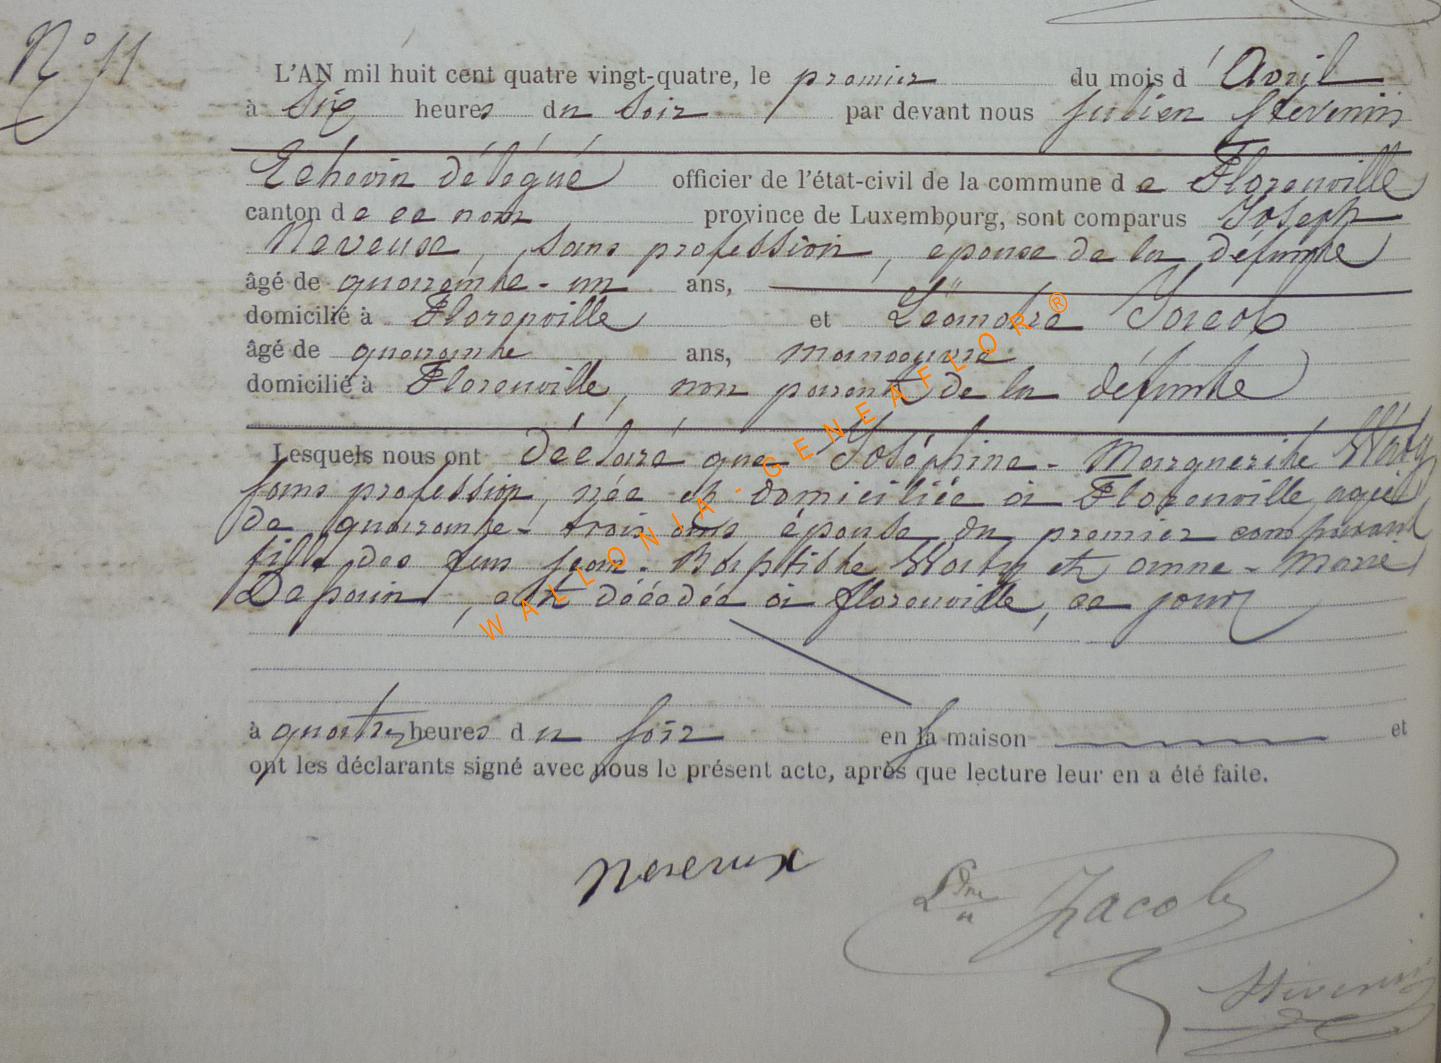 N° 11
L'AN mil huit cent quatre vingt-quatre, le premier du mois d'Avril
à six heures du soir par devant nous Julien Stévenin
Echevin délégué officier de l'état-civil de la commune de Florenville
canton de ce nom province de Luxembourg, sont comparus Joseph
Neveux, sans profession, époux de la défunte
âgé de quarante-un ans,
domicilié à Florenville et Léonard Jacob
âgé de quarante ans, manoeuvre
domicilié à Florenville, non parent de la défunte
Lesquels nous ont déclaré que Joséphine-Marguerite Watry
sans profession, née et domiciliée à Florenville, agée
de quarante-trois ans épouse du premier comparant
fille des feus Jean-Baptiste Watry et anne-Marie
Depuin, est décédée à florenville, ce jour
à quatre heures du soir en sa maison et
ont les déclarants signé avec nous le présent acte, après que lecture leur en a été faite.
Neveux
Jacob
Stévenin
WALLONIA-GENEAFLOR®